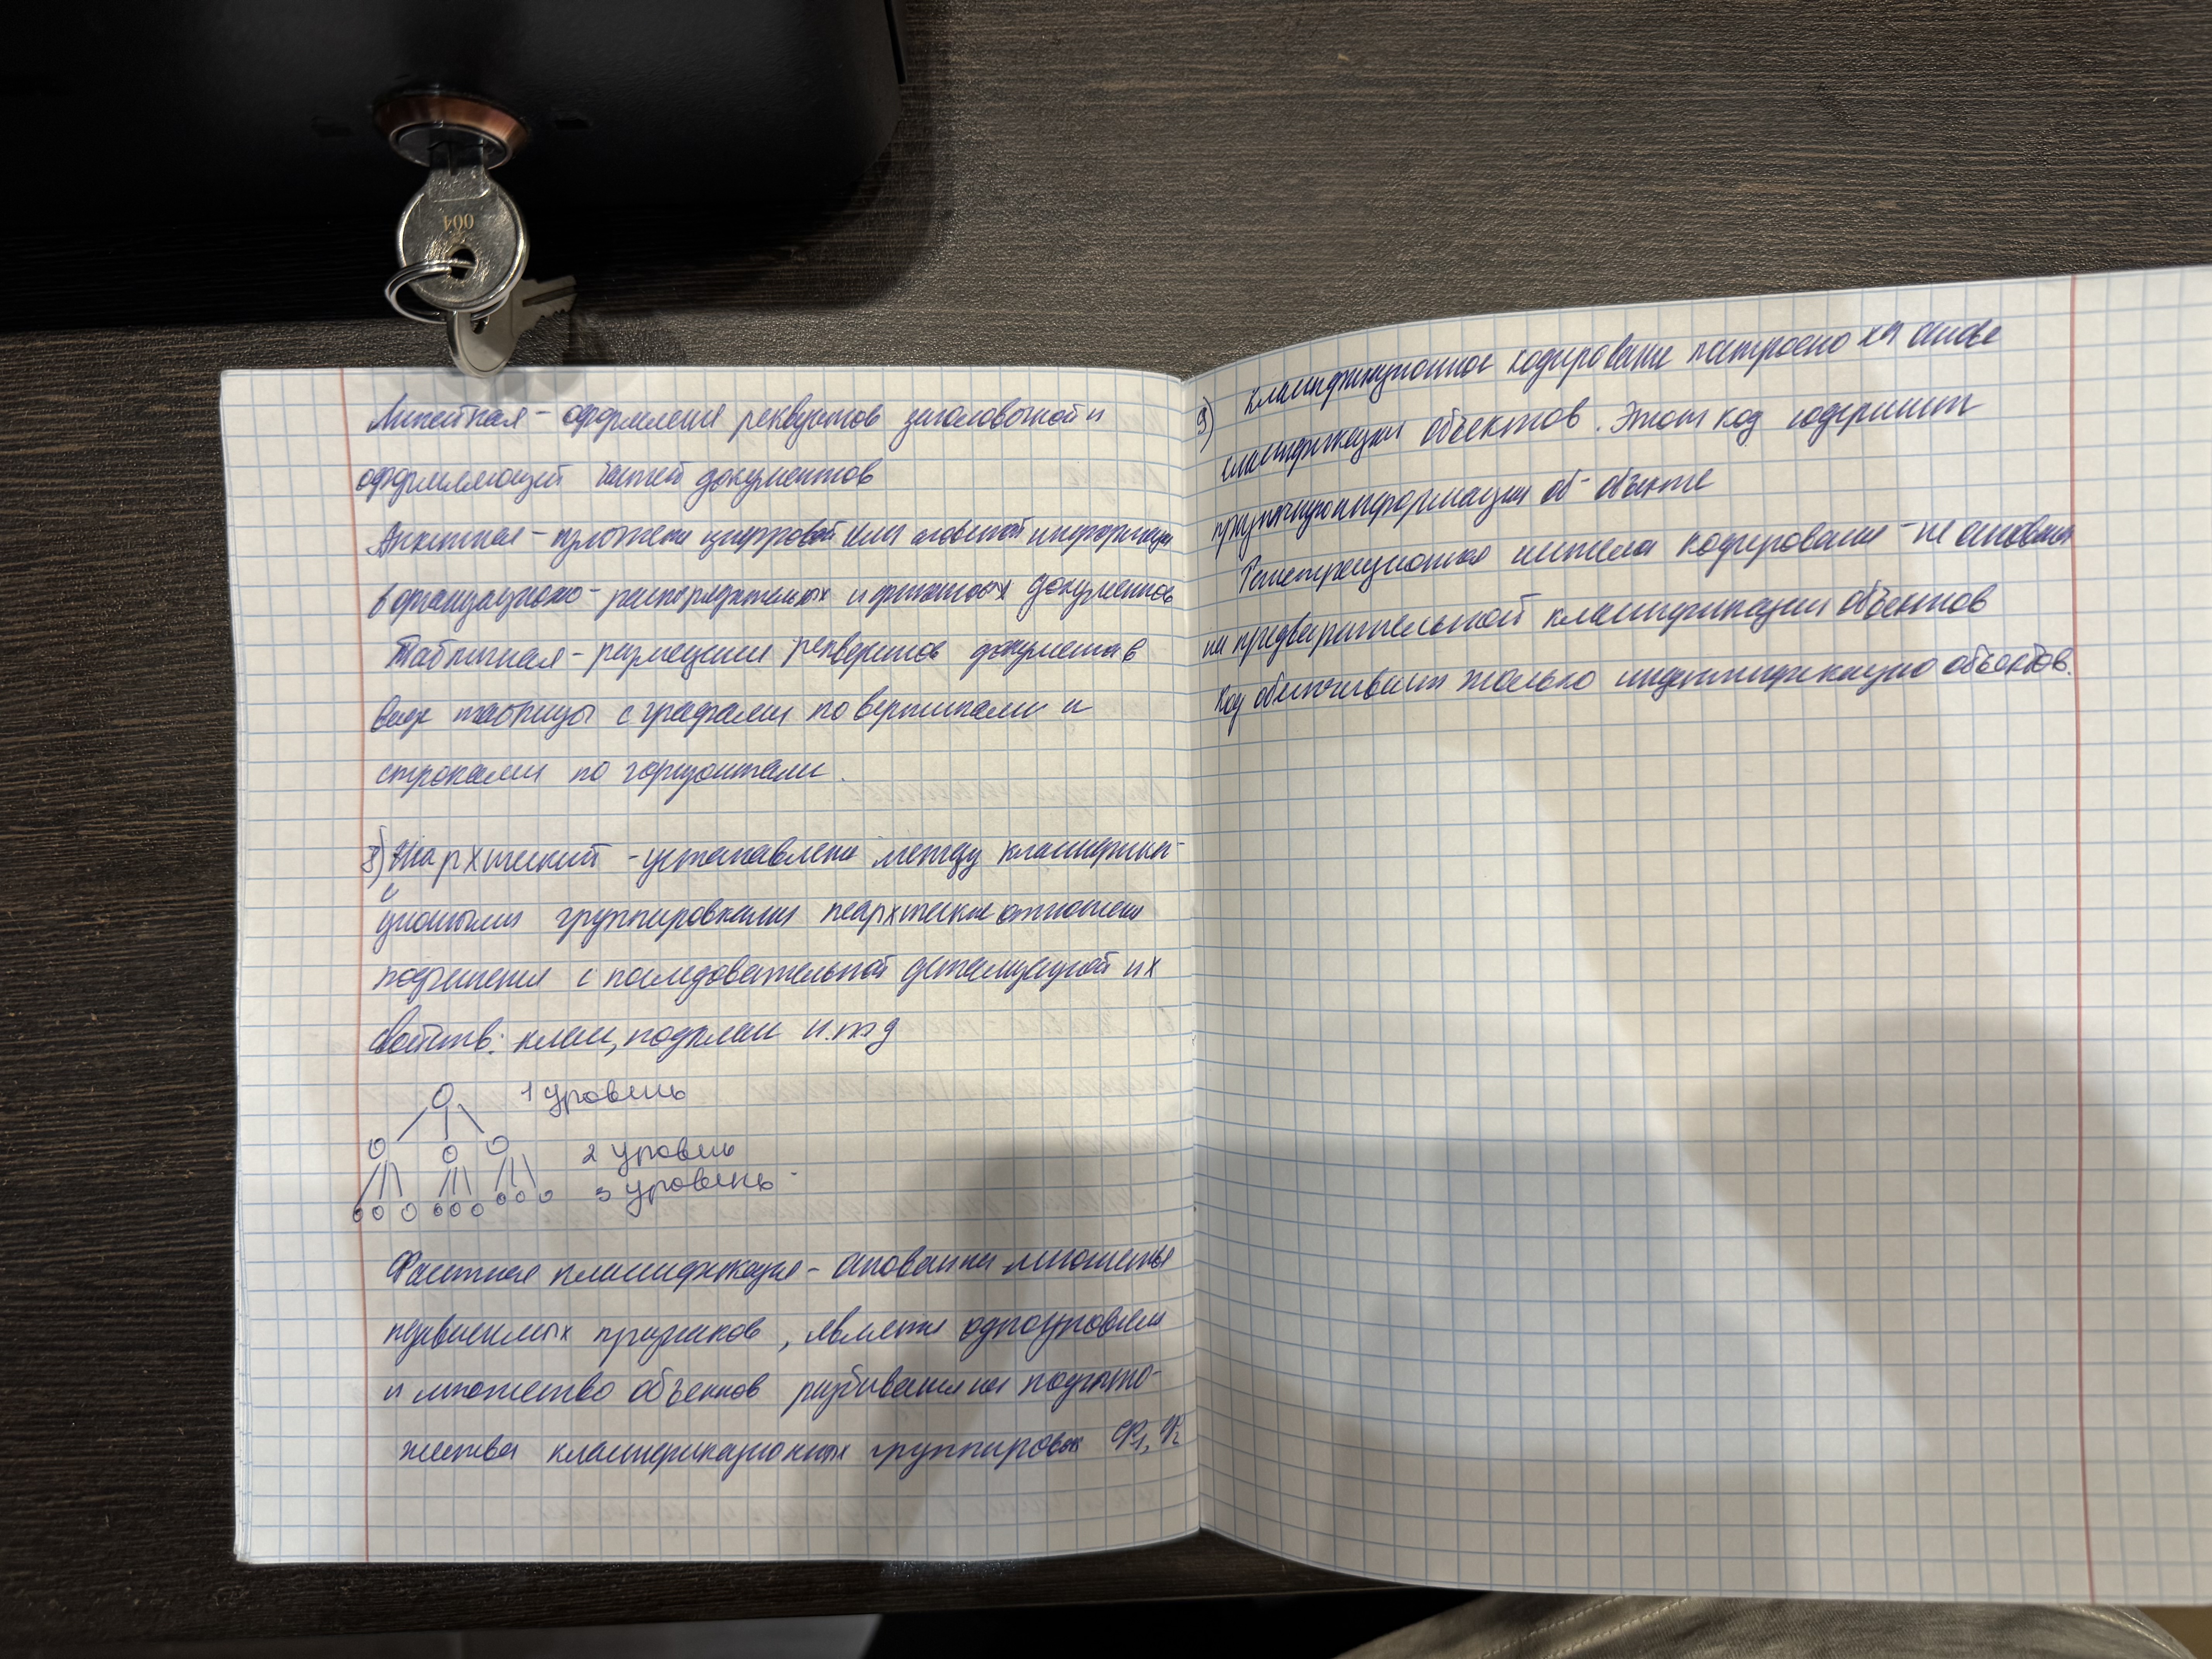 004
Линейная - оформления реквизитов заголовочной и
оформляющей частей документов
Анкетная - цифровой или информации
в организационно - распорядительных и документов
Табличная - размещения реквизитов документа в
виде таблицы с графами по вертикали и
строками по горизонтали.
8) Иерархический - установлены между классифика-
ционными группировками иерархические отношения
подчинения с последовательной детализацией их
свойств: класс, подкласс и.т.д
1 уровень
2 уровень
3 уровень
Фасетная классификация - основан на множестве
независимых признаков, является одноуровнев
и множество объектов разбивается на подмно-
жества классификационных группировок Ф1, Ф2
9) классификационное кодирование построено на основе
классификации объектов. Этот код содержит
информации об объекте
Регистрационная система кодирования - не основан
на предварительной классификации объектов
Код обеспечивает только идентификацию объектов.